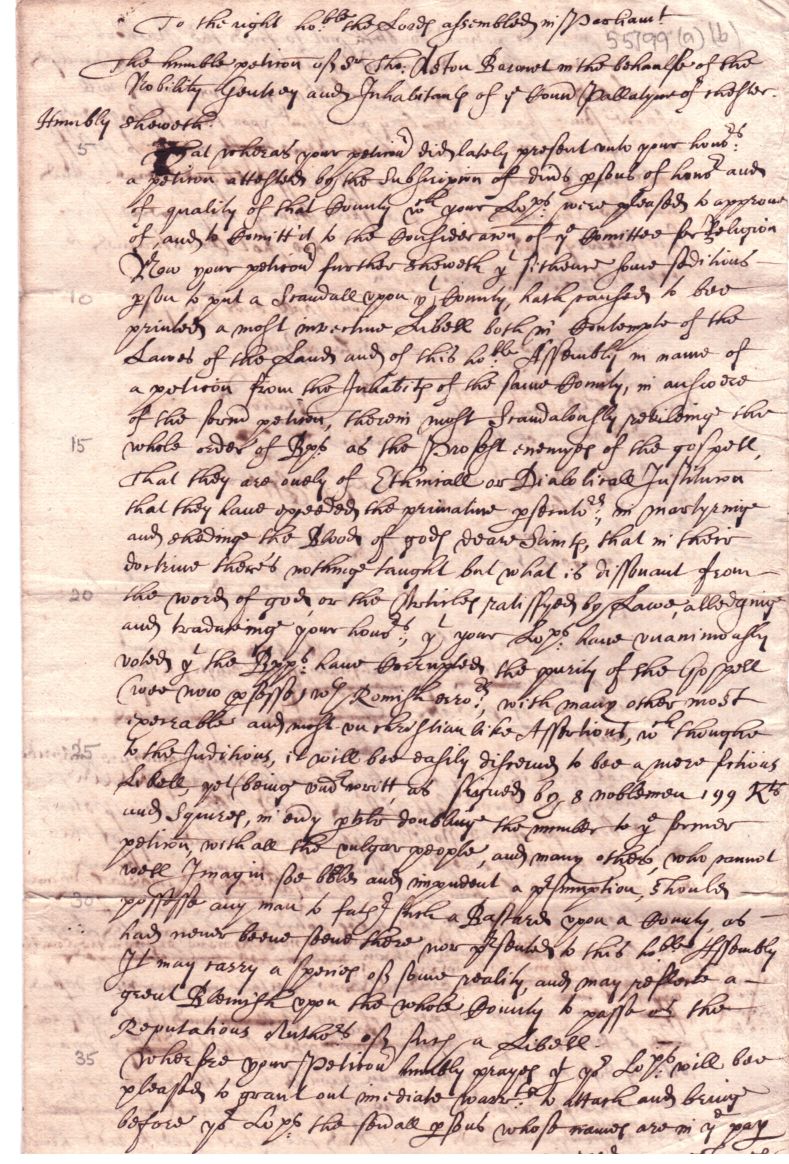 To the right ho:ble the Lords assembled in Parliamt
55799 (a) (b)
The humble peticon of Sr Tho: Aston Baronet in the behaulfe of the
Nobility Gentrey and Inhabitants of ye County Pallatyne of Chester.
Humbly sheweth
5 That wheras your peticonr did lately present unto your honrs:
a peticon attested by the Subscription of divrs psons of honr and
of quality of that County wch your Lopps: were pleased to approve
of, and to Comitt it to the Consideracon of ye Comittee for Religion
Now your peticonr further sheweth yt sithence some seditious
10 pson to put a Scandall upon yt County, hath caused to bee
printed a most invective Libell both in Contempte of the
Lawes of the Land and of this hoble Assembly in name of
a peticon from the Inhabits of the same County, in answere
of the formr peticon, therein most Scandalously revileinge the
15 whole order of Bpps: as the Profest enemyes of the gospell,
That they are onely of Ethnicall or Diabolicall Institucon
that they have exceeded the primative psecutors, in martyringe
and shedinge the Blood of gods deare Saints, that in their
doctrine there's nothinge taught but what is dissonant from
20 the word of god or the Articles rattifyed by Lawe, alledginge
and traduceinge your honrs:, yt your Lopps: have unanimously
voted yt the Bpps: have Corrupted the purity of the Gospell
(wee now pfesse) wth Romish errors, with many other most
execrable and most un christian like Assertions, wch thoughe
25 to the Juditious, it will bee easily discerned to bee a mere fictious
Libell, yet (being undrwritt, as Signed by 8 noblemen 199 Kts
and Squires, in evry pticulr doublinge the number to ye former
peticon, with all the vulgar people, and many others, who cannot
well Imagin soe bold and impudent a prsumption, should
30 possesse any man to fathr such a Bastard upon a County, as
had never beene seene there nor prsented to this hoble Assembly
It may carry a species of some reality, and may reflecte a
great Blemish upon the whole County to passe as the
Reputations Authors of such a Libell.
35 Wherefore your Peticonr humbly prayes yt yor Lopps: will bee
pleased to grant out imediate warrts: to attach and bring
before yor Lopps: the sevrall psons whose names are in ye